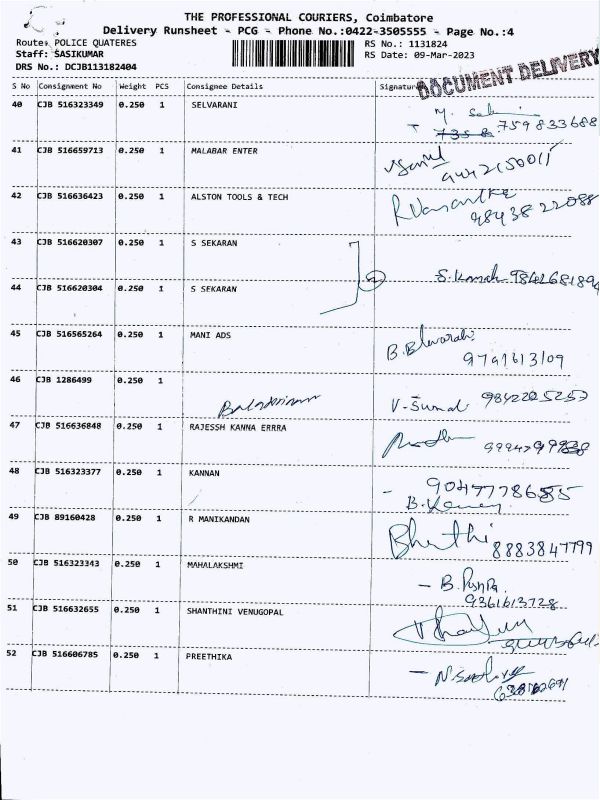 THE PROFESSIONAL COURIERS, Coimbatore
Delivery Runsheet - PCG - Phone No.:0422-3505555 - Page No.:4
Route: POLICE QUATERES RS No.: 1131824
Staff: SASIKUMAR RS Date: 09-Mar-2023
DRS No.: DCJB113182404
DOCUMENT DELIVERY
S No Consignment No Weight PCS Consignee Details Signature
40 CJB 516323349 0.250 1 SELVARANI
759833688
41 CJB 516659713 0.250 1 MALABAR ENTER
9442150011
42 CJB 516636423 0.250 1 ALSTON TOOLS & TECH
9843822088
43 CJB 516620307 0.250 1 S SEKARAN
2
44 CJB 516620304 0.250 1 S SEKARAN
45 CJB 516565264 0.250 1 MANI ADS
9791613109
46 CJB 1286499 0.250 1
9842225253
47 CJB 516636848 0.250 1 RAJESSH KANNA ERRRA
48 CJB 516323377 0.250 1 KANNAN
49 CJB 89160428 0.250 1 R MANIKANDAN
8883847799
50 CJB 516323343 0.250 1 MAHALAKSHMI
9361613728
51 CJB 516632655 0.250 1 SHANTHINI VENUGOPAL
52 CJB 516606785 0.250 1 PREETHIKA